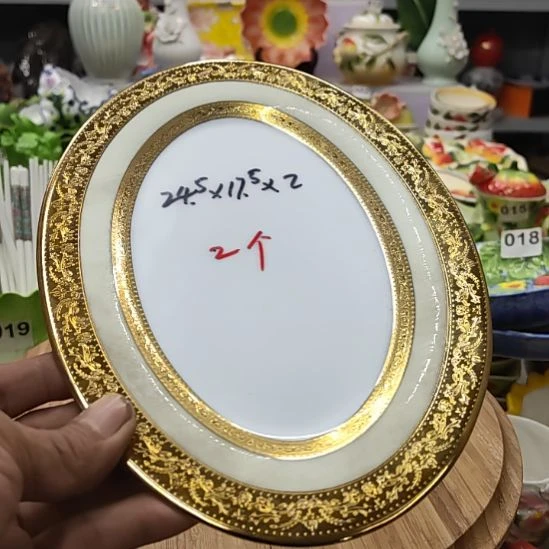 24.5x17.5x2
2个
015
018
019